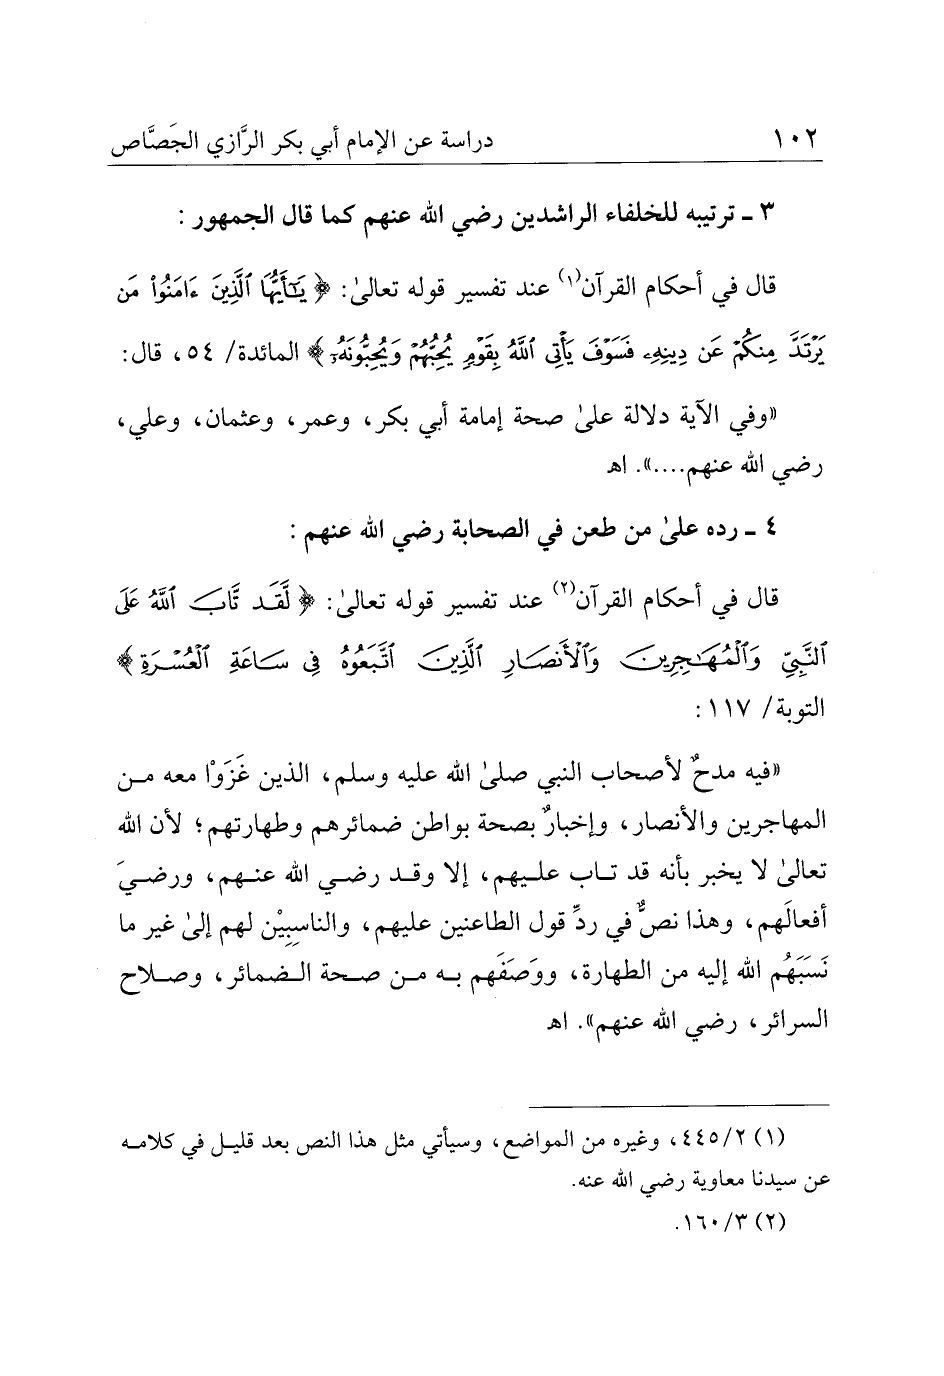 ١٠٢ دراسة عن الإمام أبي بكر الرَّازي الجَصَّاص
٣ ـ ترتيبه للخلفاء الراشدين رضي الله عنهم كما قال الجمهور :
قال في أحكام القرآن(١) عند تفسير قوله تعالىٰ: ﴿ يَٰٓأَيُّهَا ٱلَّذِينَ ءَامَنُواْ مَن
يَرْتَدَّ مِنكُمْ عَن دِينِهِۦ فَسَوْفَ يَأْتِى ٱللَّهُ بِقَوْمٍ يُحِبُّهُمْ وَيُحِبُّونَهُۥٓ ﴾ المائدة/ ٥٤، قال:
«وفي الآية دلالة علىٰ صحة إمامة أبي بكر، وعمر، وعثمان، وعلي،
رضي الله عنهم....». اهـ
٤ ـ رده علىٰ من طعن في الصحابة رضي الله عنهم :
قال في أحكام القرآن(٢) عند تفسير قوله تعالىٰ: ﴿ لَّقَد تَّابَ ٱللَّهُ عَلَى
ٱلنَّبِىِّ وَٱلْمُهَٰجِرِينَ وَٱلْأَنصَارِ ٱلَّذِينَ ٱتَّبَعُوهُ فِى سَاعَةِ ٱلْعُسْرَةِ ﴾
التوبة/ ١١٧ :
«فيه مدحٌ لأصحاب النبي صلىٰ الله عليه وسلم، الذين غَزَوْا معه من
المهاجرين والأنصار، وإخبارٌ بصحة بواطن ضمائرهم وطهارتهم؛ لأن الله
تعالىٰ لا يخبر بأنه قد تاب عليهم، إلا وقد رضي الله عنهم، ورضيَ
أفعالَهم، وهذا نصٌّ في ردِّ قول الطاعنين عليهم، والناسِبِيْن لهم إلىٰ غير ما
نَسَبَهُم الله إليه من الطهارة، ووَصَفَهم به من صحة الضمائر، وصلاح
السرائر، رضي الله عنهم». اهـ
(١) ٤٤٥/٢، وغيره من المواضع، وسيأتي مثل هذا النص بعد قليل في كلامه
عن سيدنا معاوية رضي الله عنه.
(٢) ١٦٠/٣.